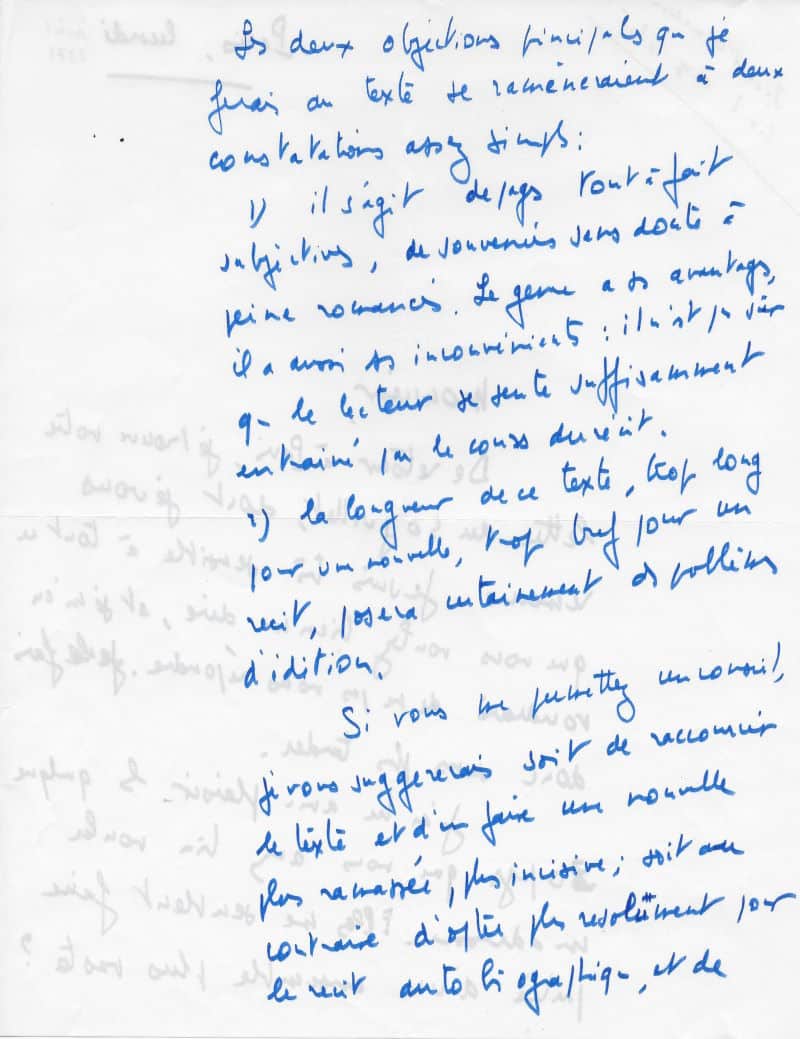 Les deux objections principales que je
ferais au texte se ramèneraient à deux
constatations assez simples :
1) il s'agit de pages tout à fait
subjectives, de souvenirs sans doute à
peine romancés. Le genre a ses avantages,
il a aussi ses inconvénients : il n'est pas sûr
que le lecteur se sente suffisamment
entraîné par le cours du récit.
2) la longueur de ce texte, trop long
pour une nouvelle, trop bref pour un
récit, posera certainement des problèmes
d'édition.
Si vous me permettez un conseil,
je vous suggererais soit de raccourcir
le texte et d'en faire une nouvelle
plus ramassée, plus incisive ; soit au
contraire d'opter plus resolument pour
le récit autobiographique, et de